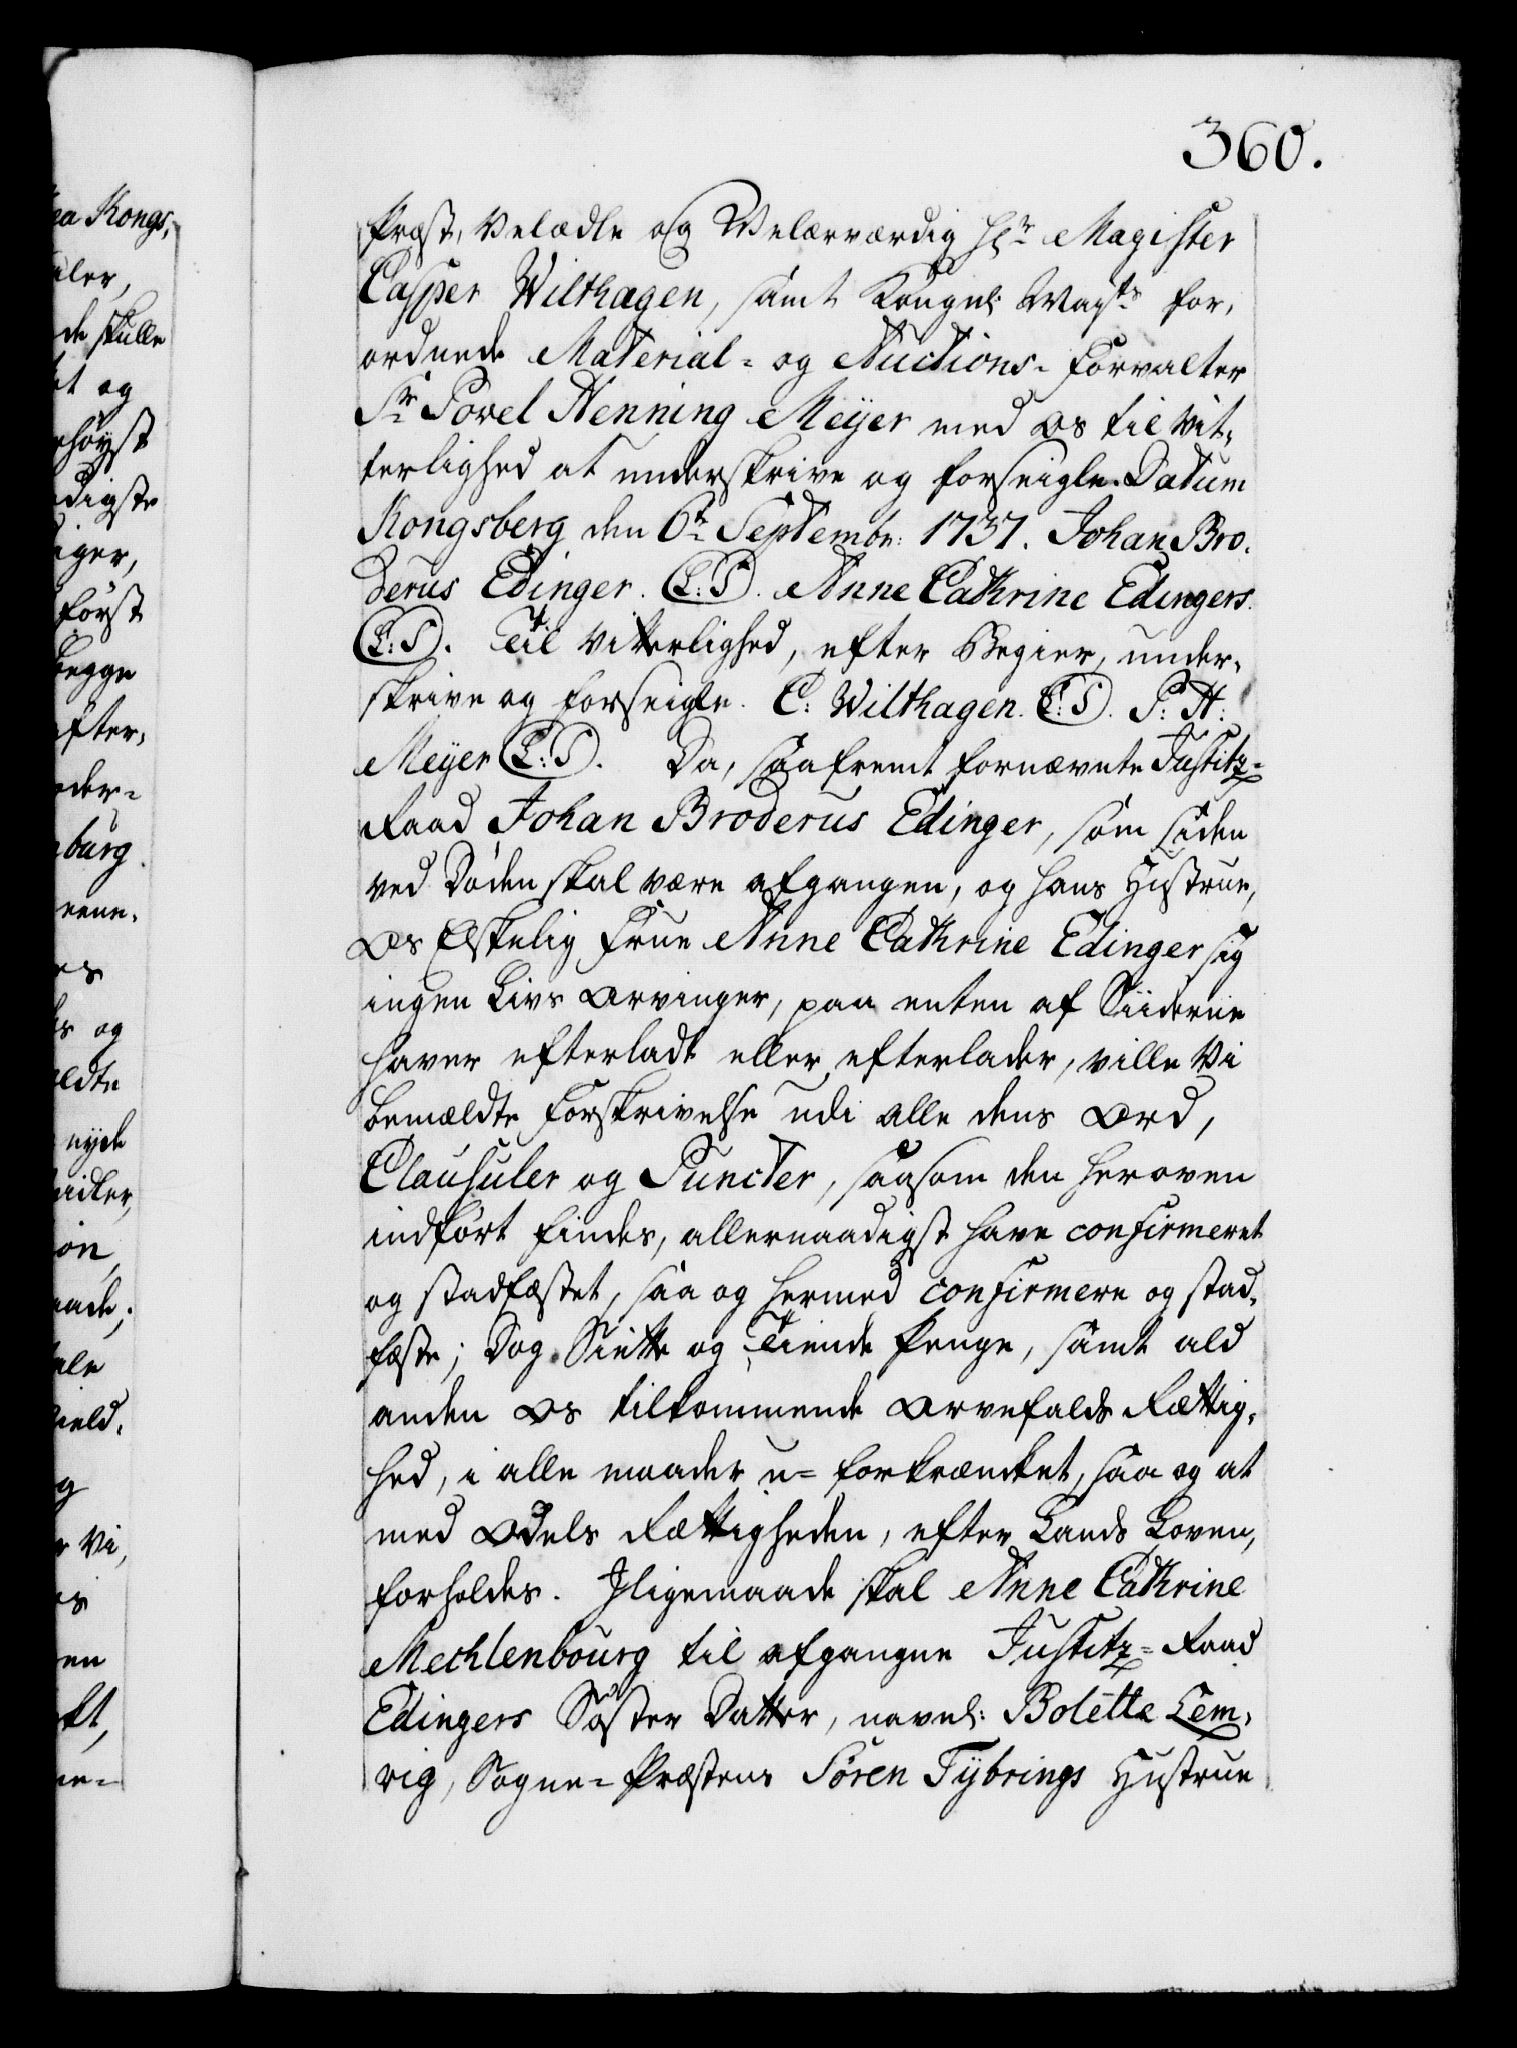 360.
Præst, Velædle og Velærværdig Hr. Magister
Casper Wilthagen, samt Kongel: Mayts. for-
ordnede Material- og Auctions-Forvalter
Sr. Povel Henning Meyer med os til Vit-
terlighed at underskrive og forseigle. Datum
Kongsberg den 6te Septembr: 1737. Johan Bro-
derus Edinger. (L:S). Anne Cathrine Edingers.
(L:S). Til Vitterlighed, efter Begier, under-
skrive og forseigle. C: Wilthagen. (L:S). P: H:
Meyer (L:S). Da, saafremt fornævnte Justitz-
Raad Johan Broderus Edinger, som siden
ved Døden skal være afgangen, og hans Hustrue,
Os Elskelig Frue Anne Cathrine Edinger sig
ingen Livs Arvinger, paa enten af Siiderne
haver efterladt eller efterlader, ville Vi
bemældte Forskrivelse udi alle dens Ord,
Clausuler og Puncter, saasom den heroven
indført findes, allernaadigst have confirmeret
og stadfæstet, saa og hermed confirmere og stad-
fæste; Dog Siette og Tiende Penge, samt ald
anden Os tilkommende Arvefalds Rettig-
hed, i alle maader u-forkræncket, saa og at
med Odels Rettigheden, efter Lands Loven,
forholdes. Iligemaade skal Anne Cathrine
Mechlenbourg til afgangne Justitz-Raad
Edingers Søster Datter, navnl: Bolette Lem-
vig, Sogne-Præstens Søren Tybrings Hustrue
ea Kongs-
uler,
de skulle
et og
rhøyst
digste
iger,
først
begge
fter-
eder-
burg.
eene-
es
ks og
ldte
nyde
aicker,
on,
aade;
ele
ield-
g
r Vi,
is
en
kt,
ne-